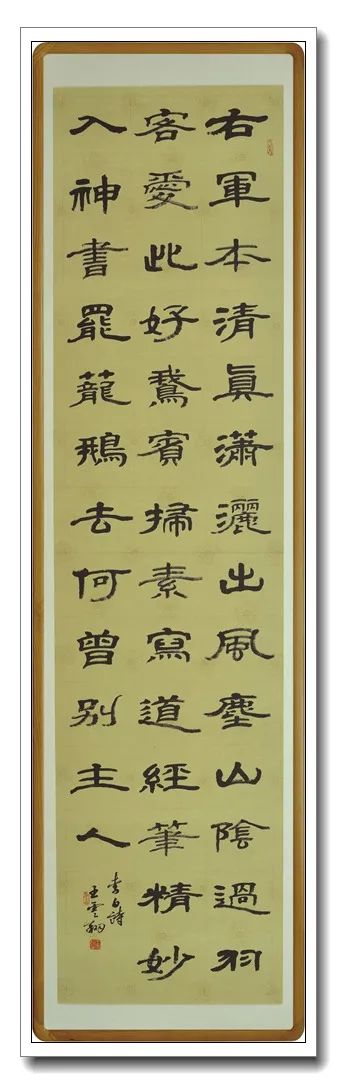 右軍本清眞瀟灑出風塵山陰過羽
客愛此好鵞賓掃素寫道經筆精妙
入神書罷籠鵝去何曾別主人
李白詩
王雲翔